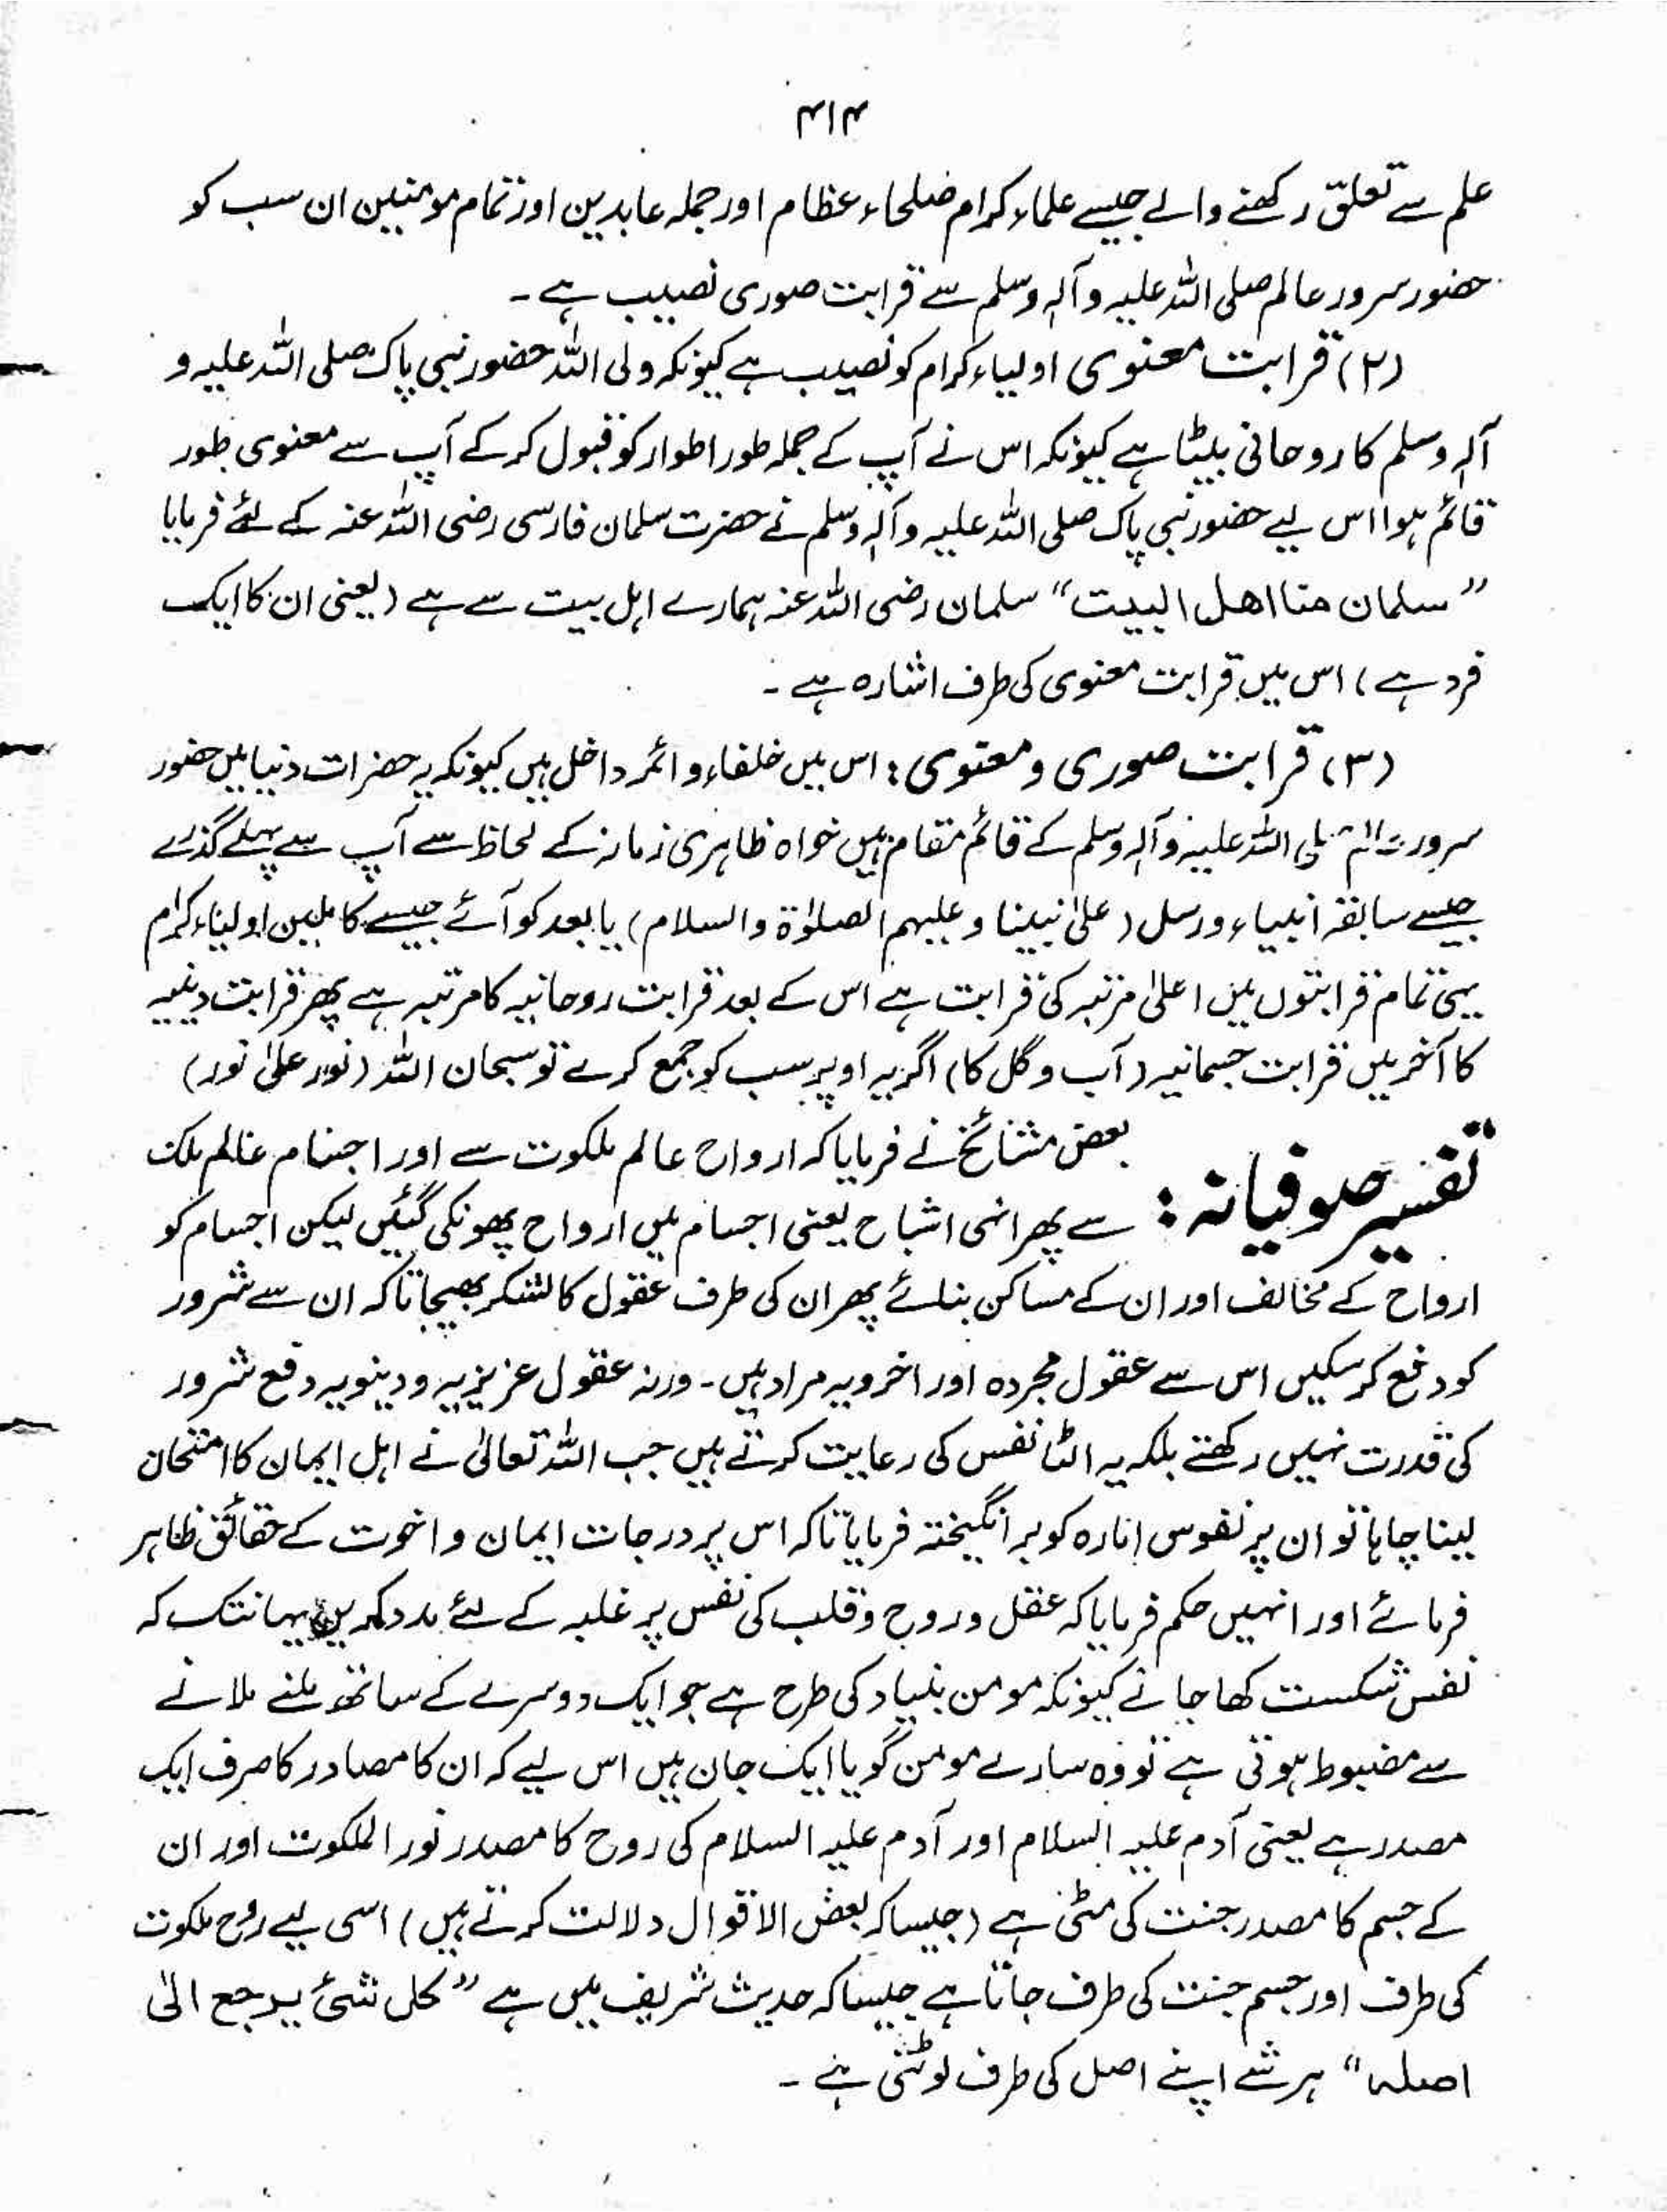 ۴۱۴
علم سے تعلق رکھنے والے جیسے علماء کرام صلحاء عظام اور جملہ عابدین اور تمام مومنین ان سب کو
حضور سرور عالم صلی اللہ علیہ وآلہ وسلم سے قرابت صوری نصیب ہے۔
(۲) قرابت معنوی اولیاء کرام کو نصیب ہے کیونکہ ولی اللہ حضور نبی پاک صلی اللہ علیہ و
آلہ وسلم کا روحانی بیٹا ہے کیونکہ اس نے آپ کے جملہ طور اطوار کو قبول کر کے آپ سے معنوی طور
قائم ہوا اس لیے حضور نبی پاک صلی اللہ علیہ وآلہ وسلم نے حضرت سلمان فارسی رضی اللہ عنہ کے لئے فرمایا
”سلمان منا اھل البیت“ سلمان رضی اللہ عنہ ہمارے اہل بیت سے ہے (یعنی ان کا ایک
فرد ہے) اس میں قرابت معنوی کی طرف اشارہ ہے۔
(۳) قرابت صوری و معنوی : اس میں خلفاء و ائمہ داخل ہیں کیونکہ یہ حضرات دنیا میں حضور
سرور عالم صلی اللہ علیہ وآلہ وسلم کے قائم مقام ہیں خواہ ظاہری زمانہ کے لحاظ سے آپ سے پہلے گذرے
جیسے سابقہ انبیاء و رسل (علیٰ نبینا و علیہم الصلوٰۃ والسلام) یا بعد کو آئے جیسے کاملین اولیاء کرام
یہی تمام قرابتوں میں اعلیٰ مرتبہ کی قرابت ہے اس کے بعد قرابت روحانیہ کا مرتبہ ہے پھر قرابت دینیہ
کا آخر میں قرابت جسمانیہ (آب و گل کا) اگر یہ اوپر سب کو جمع کرے تو سبحان اللہ (نور علیٰ نور)
تفسیر صوفیانہ : بعض مشائخ نے فرمایا کہ ارواح عالم ملکوت سے اور اجسام عالم ملک
سے پھر انہی اشباح یعنی اجسام میں ارواح پھونکی گئیں لیکن اجسام کو
ارواح کے مخالف اور ان کے مساکن بنائے پھر ان کی طرف عقول کا لشکر بھیجا تاکہ ان سے شرور
کو دفع کر سکیں اس سے عقول مجردہ اور اخرویہ مراد ہیں۔ ورنہ عقول عزیزیہ و دینویہ دفع شرور
کی قدرت نہیں رکھتے بلکہ یہ الٹا نفس کی رعایت کرتے ہیں جب اللہ تعالیٰ نے اہل ایمان کا امتحان
لینا چاہا تو ان پر نفوس امارہ کو برانگیختہ فرمایا تاکہ اس پر درجات ایمان و اخوت کے حقائق ظاہر
فرمائے اور انہیں حکم فرمایا کہ عقل و روح و قلب کی نفس پر غلبہ کے لئے مدد کریں یہانتک کہ
نفس شکست کھا جائے کیونکہ مومن بنیاد کی طرح ہے جو ایک دوسرے کے ساتھ ملنے ملانے
سے مضبوط ہوتی ہے تو وہ سارے مومن گویا ایک جان ہیں اس لیے کہ ان کا مصادر کا صرف ایک
مصدر ہے یعنی آدم علیہ السلام اور آدم علیہ السلام کی روح کا مصدر نور الملکوت اور ان
کے جسم کا مصدر جنت کی مٹی ہے (جیسا کہ بعض الاقوال دلالت کرتے ہیں) اسی لیے روح ملکوت
کی طرف اور جسم جنت کی طرف جاتا ہے جیسا کہ حدیث شریف میں ہے ”کل شئ یرجع الیٰ
اصلہ“ ہر شے اپنے اصل کی طرف لوٹتی ہے۔